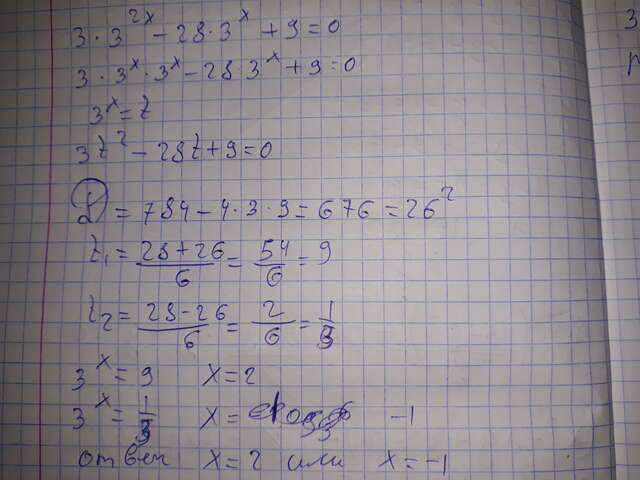 3·3^2x − 28·3^x + 9=0
3·3^x·3^x − 28 3^x + 9=0
3^x = t
3t^2 − 28t + 9=0
D = 784 − 4·3·9 = 676 = 26^2
t1 = 28+26/6 = 54/6 = 9
t2 = 28-26/6 = 2/6 = 1/3
3^x = 9 x=2
3^x = 1/3 x= −1
ответ x=2 или x=-1
3